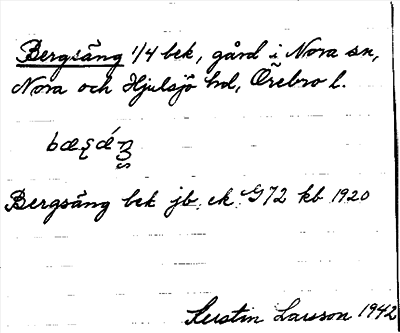 Bergsäng 1/4 bek, gård i Nora sn,
Nora och Hjulsjö hd, Örebro l.
Bergsäng bek jb. ek. G72 kb 1920
Kerstin Larsson 1942